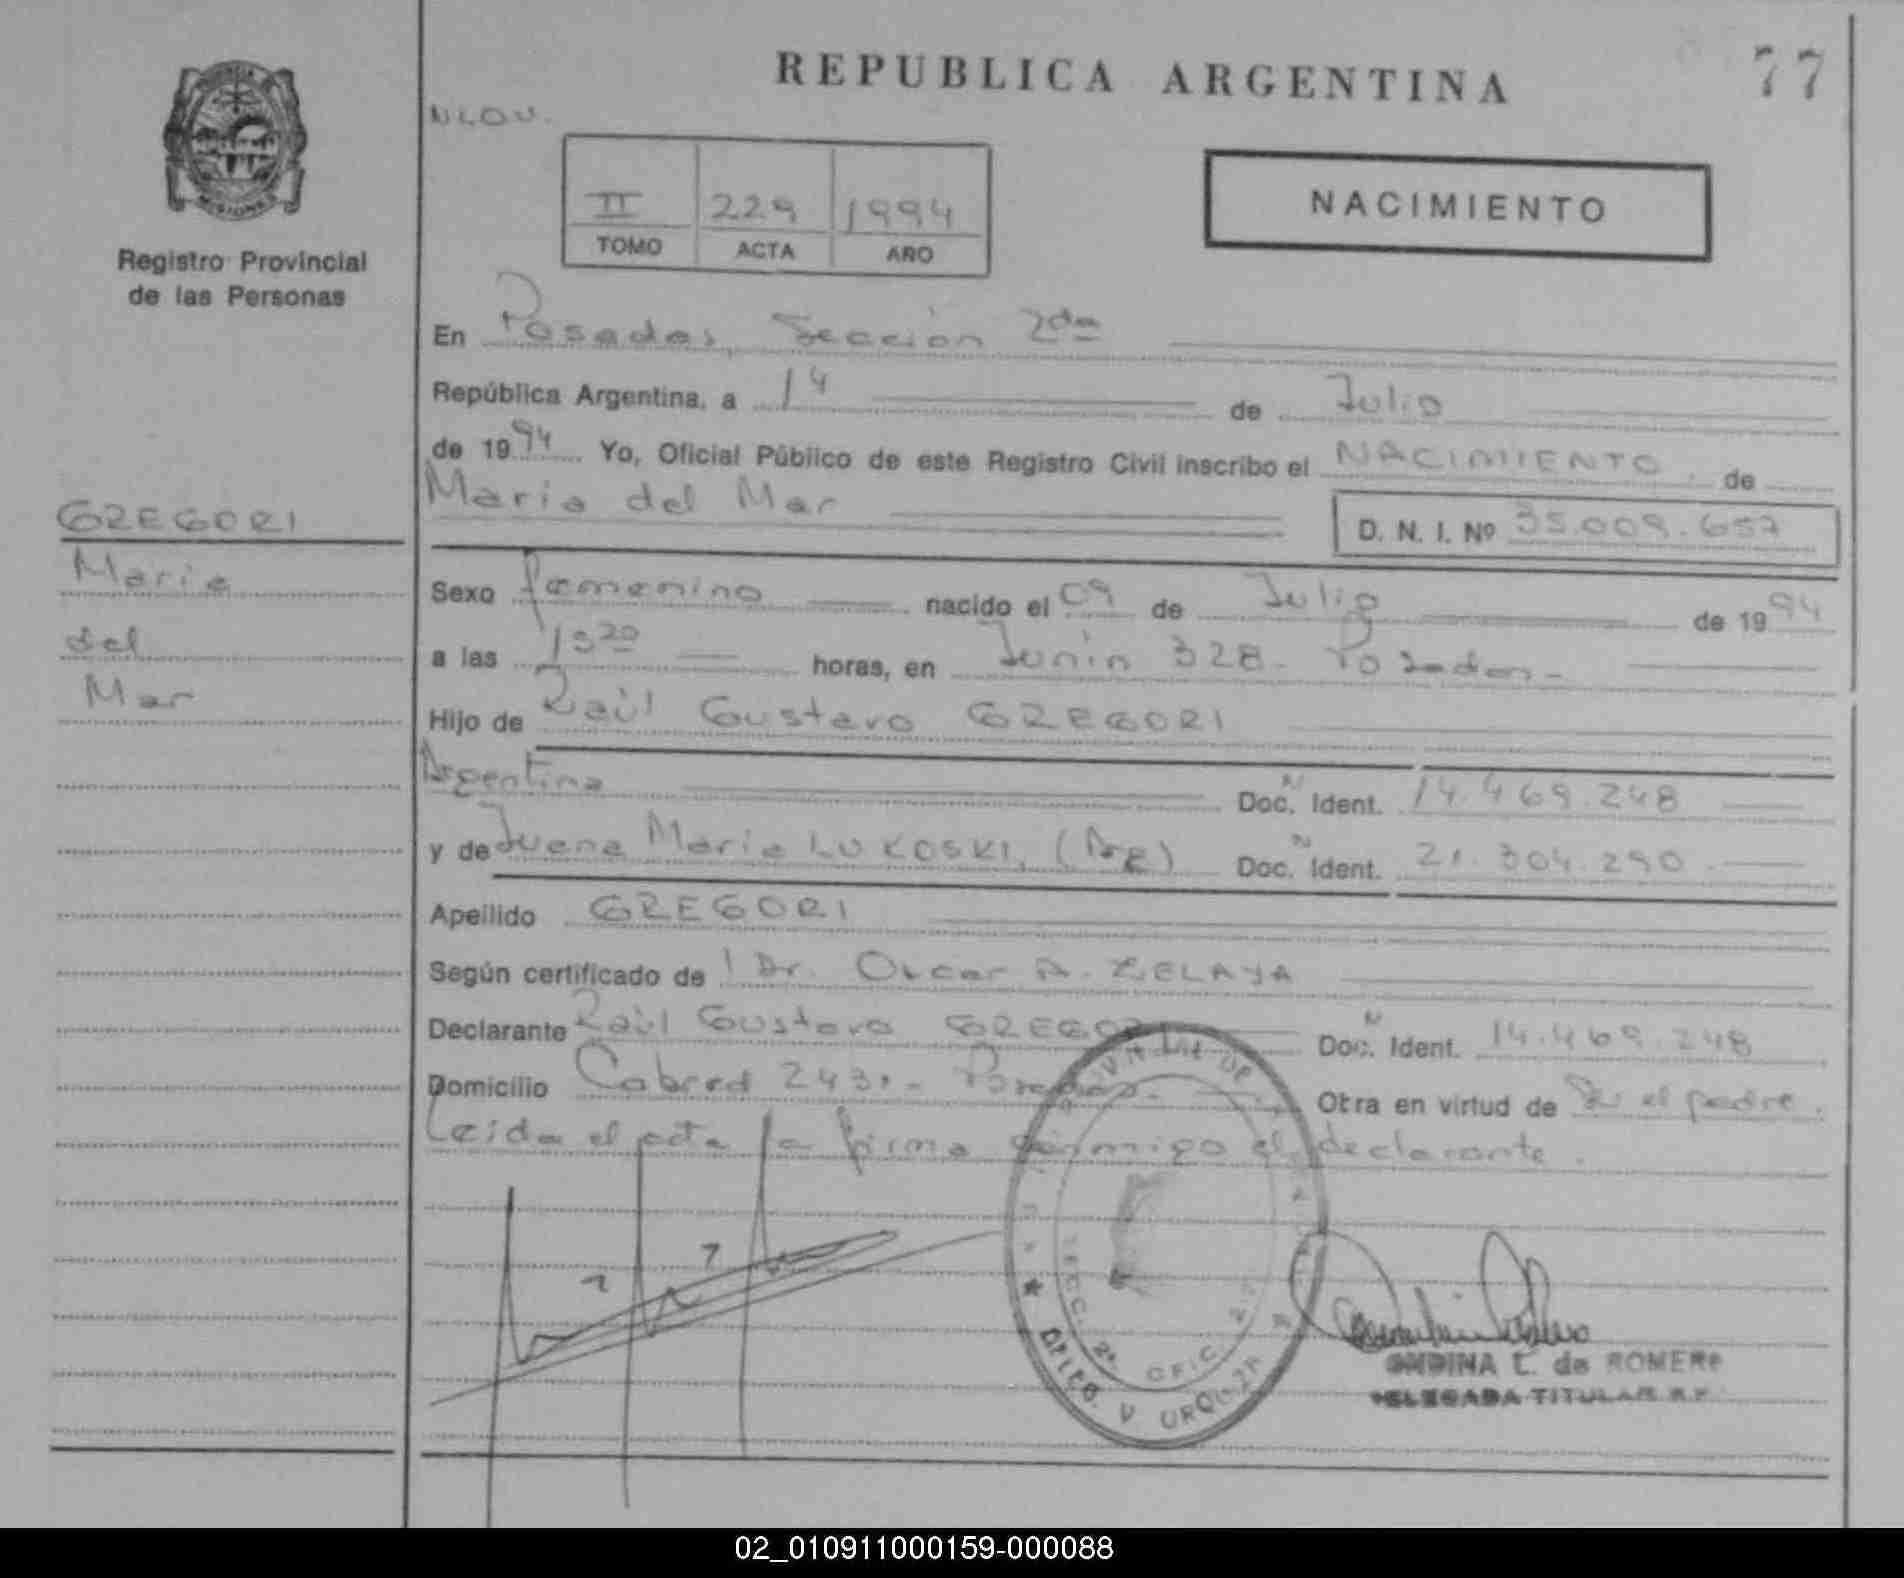 REPUBLICA ARGENTINA
77
PROVINCIA
MISIONES
Registro Provincial
de las Personas
II 229 1994
TOMO ACTA AÑO
NACIMIENTO
En Posadas, Sección 2da
República Argentina, a 14 de Julio
de 1994 Yo, Oficial Público de este Registro Civil inscribo el NACIMIENTO de
María del Mar D. N. I. Nº 35.009.657
GREGORI
María
del
Mar
Sexo femenino nacido el 09 de Julio de 1994
a las 1520 horas, en Junín 328 - Posadas -
Hijo de Raúl Gustavo GREGORI
Argentina Doc. Ident. 14.469.248
y de Juana María LUKOSKI, (Arg) Doc. Ident. 21.304.290
Apellido GREGORI
Según certificado de Dr. Oscar A. ZELAYA
Declarante Raúl Gustavo GREGORI Doc. Ident. 14.469.248
Domicilio Cabred 2431 - Posadas - Otra en virtud de Ser el padre.
Leída el acta la firma conmigo el declarante.
SECC. 2ª OFIC.
DPLEG. V URQUIZA
ONDINA L. de ROMERO
DELEGADA TITULAR R.P.
02_010911000159-000088